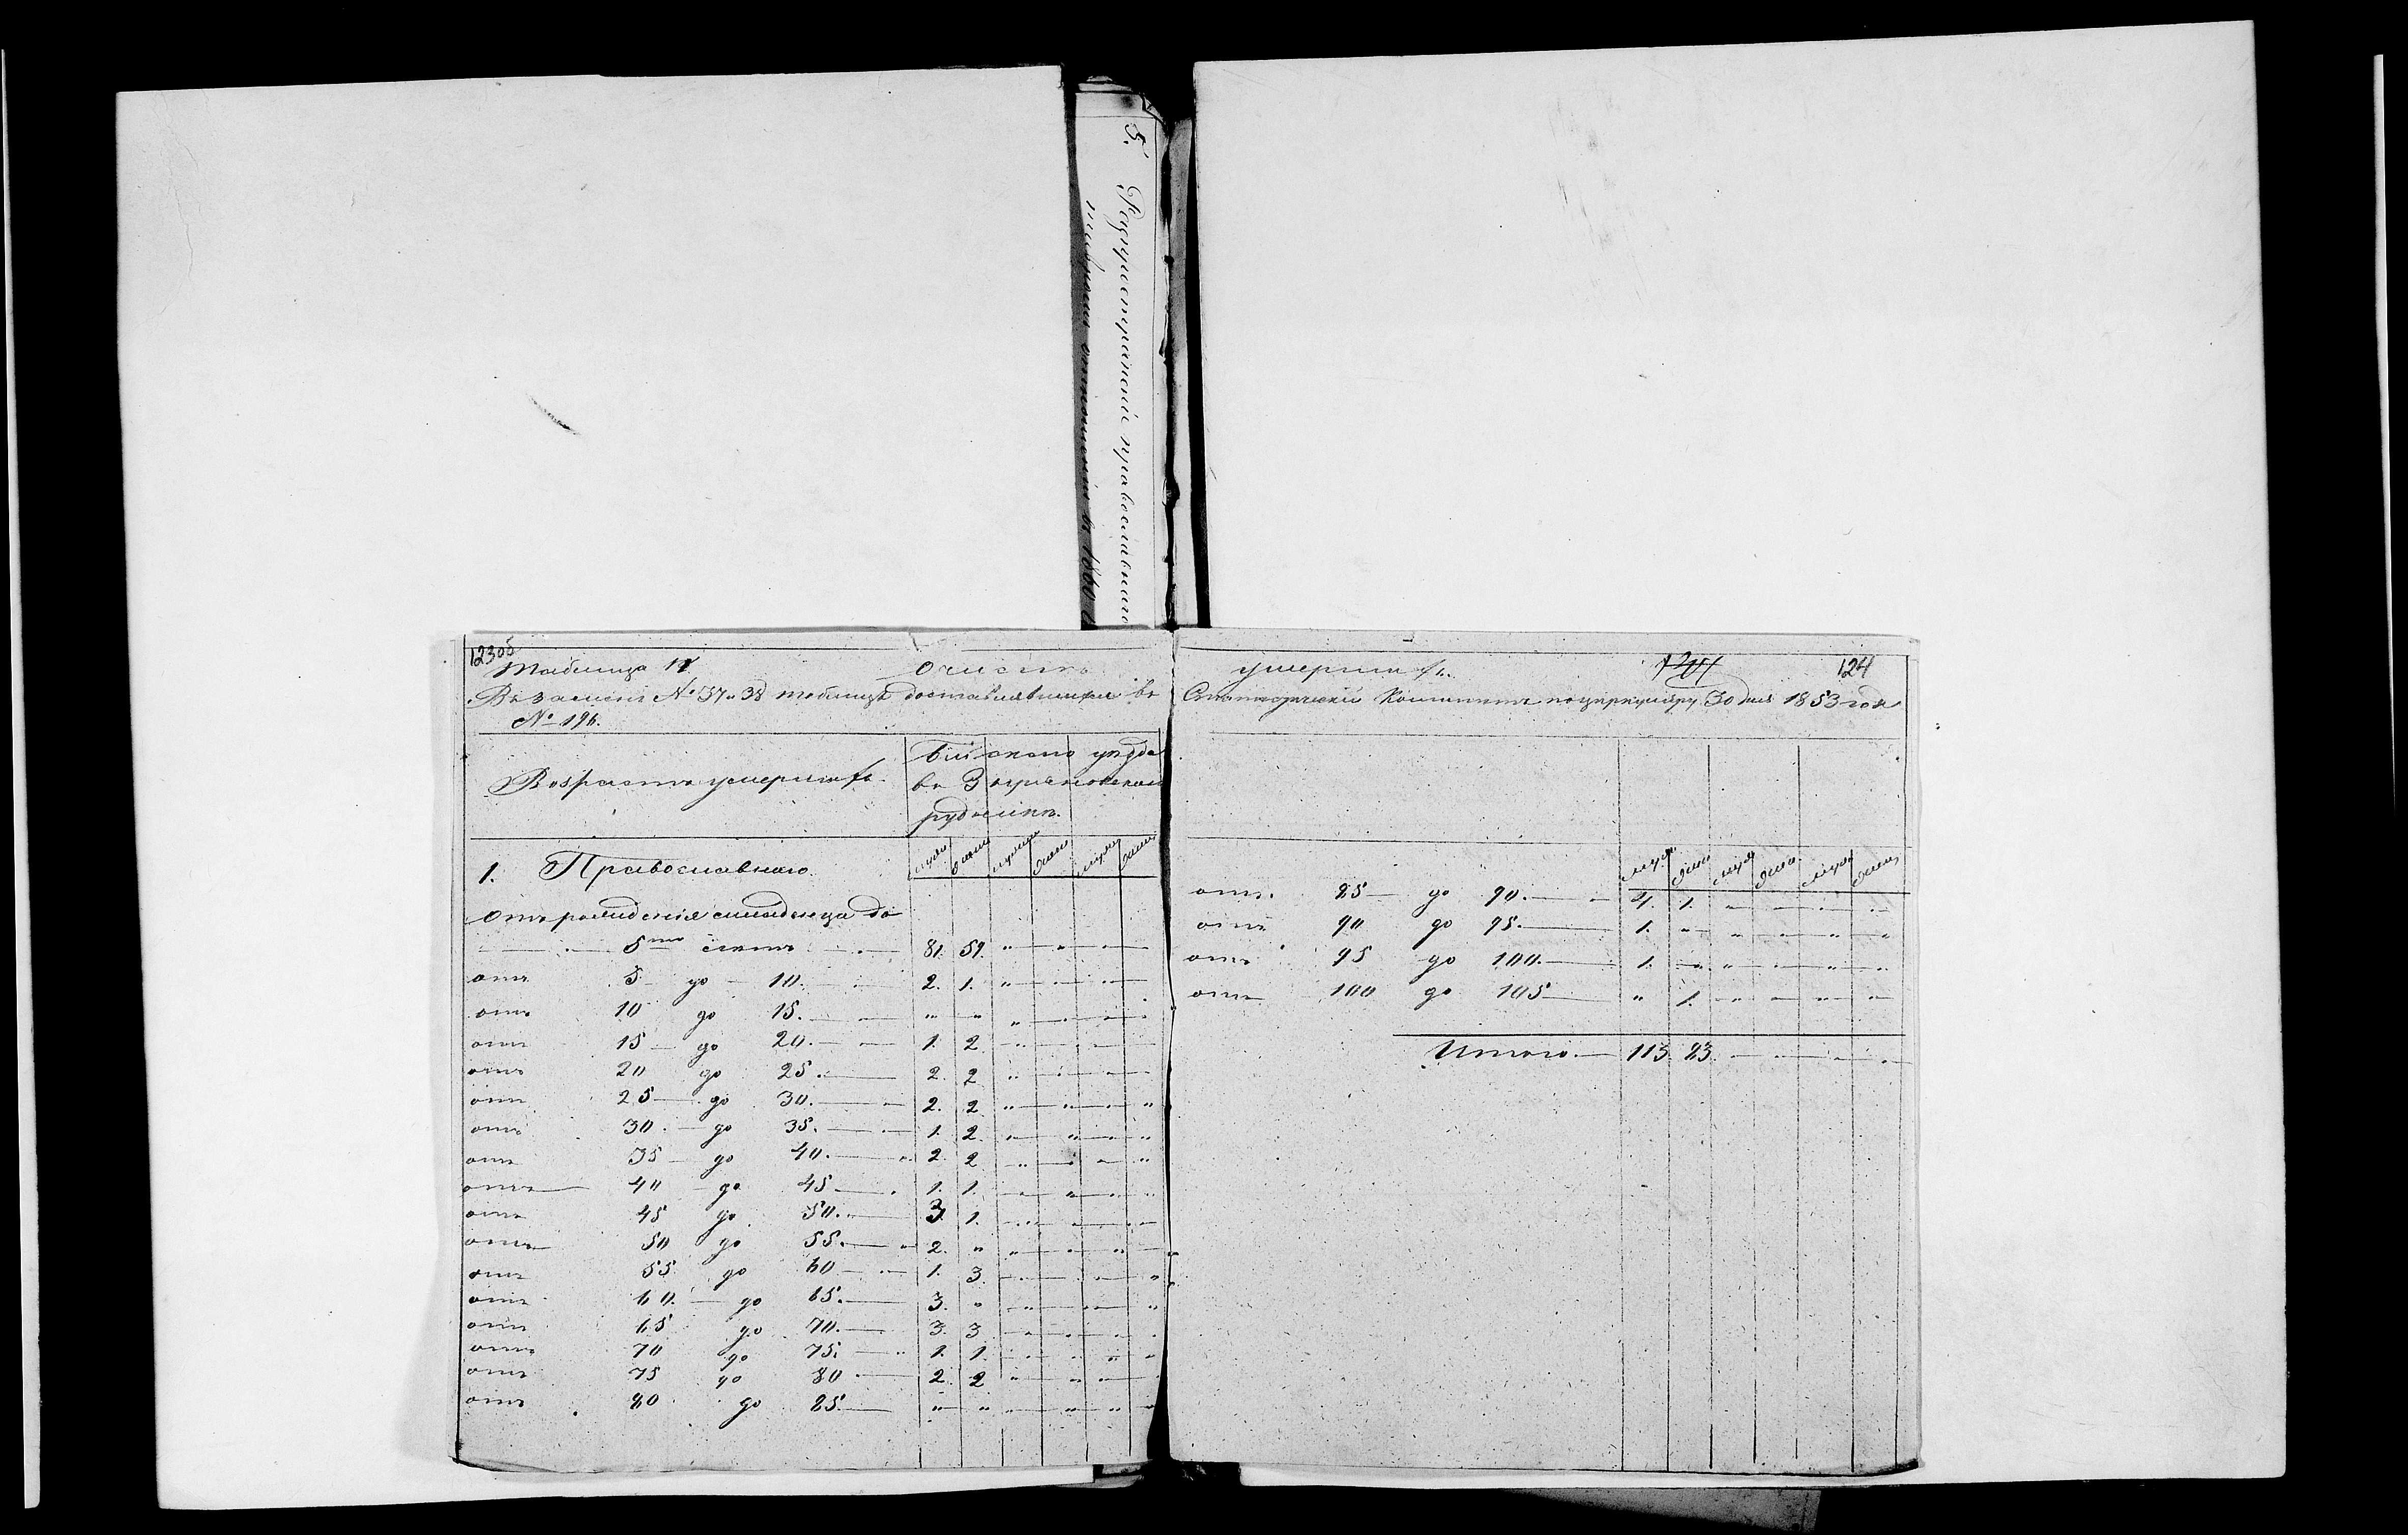 5. Регистратский православнаго
въ 1860
123об
Таблица 14 О числѣ
Въ замѣнъ № 37 и 38 таблицъ доставлявшихся въ
№ 196.
Возрастъ умершихъ.
Бійскаго уѣзда
въ Зыряновскомъ
рудникѣ.
1. Православнаго.
муж. жен. муж. жен. муж. жен.
Отъ рожденія младенца до
5ти лѣтъ 81. 59. „ „ „ „
отъ 5 до 10. 2. 1. „ „ „ „
отъ 10 до 15. „ „ „ „ „ „
отъ 15 до 20. 1. 2 „ „ „ „
отъ 20 до 25. 2. 2 „ „ „ „
отъ 25 до 30. 2. 2 „ „ „ „
отъ 30 до 35. 1. 2. „ „ „ „
отъ 35 до 40. 2. 2 „ „ „ „
отъ 40 до 45 1. 1. „ „ „ „
отъ 45 до 50. 3. 1. „ „ „ „
отъ 50 до 55. 2. „ „ „ „ „
отъ 55 до 60 1. 3. „ „ „ „
отъ 60. до 65. 3. „ „ „ „ „
отъ 65 до 70. 3. 3 „ „ „ „
отъ 70 до 75. 1. 1. „ „ „ „
отъ 75 до 80 2. 2 „ „ „ „
отъ 80 до 85. „ „ „ „ „ „
умершихъ. 124
Статистическій Комитетъ по циркуляру 30 дня 1853 года
муж. жен. муж. жен. муж. жен.
отъ 85 до 90. 4. 1. „ „ „ „
отъ 90 до 95. 1. „ „ „ „ „
отъ 95 до 100. 1. „ „ „ „ „
отъ 100 до 105 „ 1. „ „ „ „
Итого 113. 83. „ „ „ „